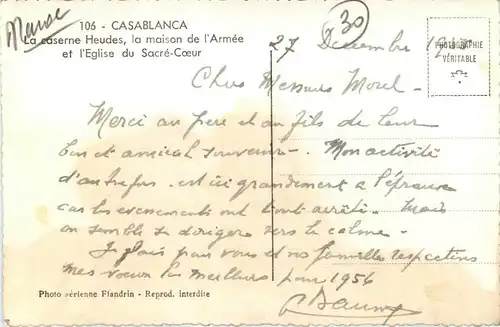 Maroc
30
106 - CASABLANCA
La caserne Heudes, la maison de l'Armée
et l'Eglise du Sacré-Cœur
PHOTOGRAPHIE
VÉRITABLE
27 Decembre
Chers Messieurs Morel -
Merci au père et au fils de leur
bon et amical souvenir - Mon activité
d'autrefois est ici grandement à l'épreuve
car les evenements ont tout arrêté. Mais
on semble se diriger vers le calme -
Je fais pour vous et vos familles respectives
mes voeux les meilleurs pour 1956
Photo aérienne Flandrin - Reprod. interdite